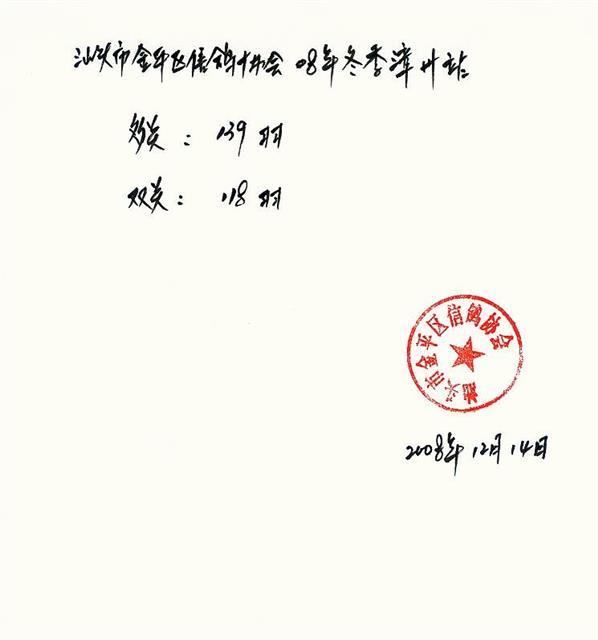 汕头市金平区信鸽协会 08年冬季漳州站
多关：139羽
双关：118羽
汕头市金平区信鸽协会
2008年12月14日